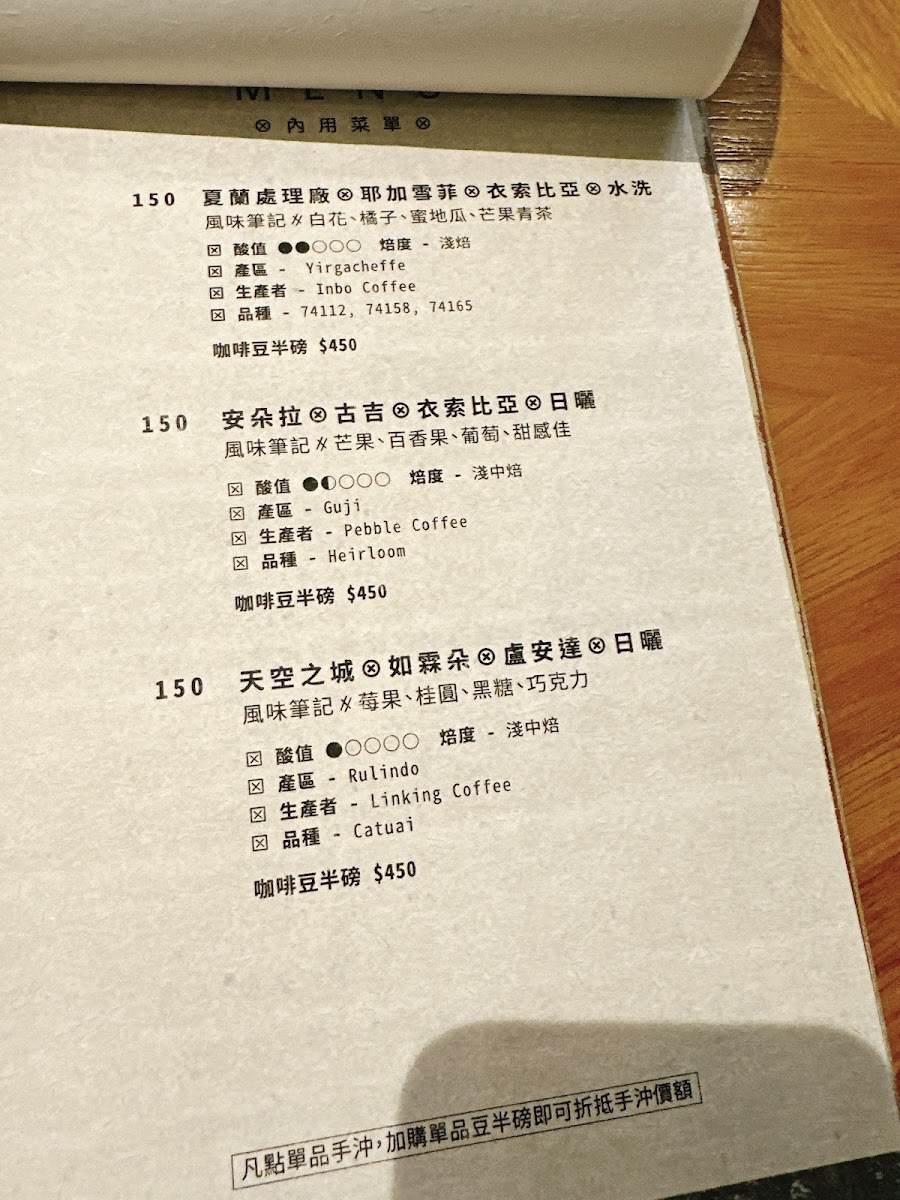 MENU
⊗ 內用菜單 ⊗
150 夏蘭處理廠⊗耶加雪菲⊗衣索比亞⊗水洗
風味筆記 // 白花、橘子、蜜地瓜、芒果青茶
☒ 酸值 ●●○○○ 焙度 - 淺焙
☒ 產區 - Yirgacheffe
☒ 生產者 - Inbo Coffee
☒ 品種 - 74112, 74158, 74165
咖啡豆半磅 $450
150 安朵拉⊗古吉⊗衣索比亞⊗日曬
風味筆記 // 芒果、百香果、葡萄、甜感佳
☒ 酸值 ●◐○○○ 焙度 - 淺中焙
☒ 產區 - Guji
☒ 生產者 - Pebble Coffee
☒ 品種 - Heirloom
咖啡豆半磅 $450
150 天空之城⊗如霖朵⊗盧安達⊗日曬
風味筆記 // 莓果、桂圓、黑糖、巧克力
☒ 酸值 ●○○○○ 焙度 - 淺中焙
☒ 產區 - Rulindo
☒ 生產者 - Linking Coffee
☒ 品種 - Catuai
咖啡豆半磅 $450
凡點單品手沖，加購單品豆半磅即可折抵手沖價額